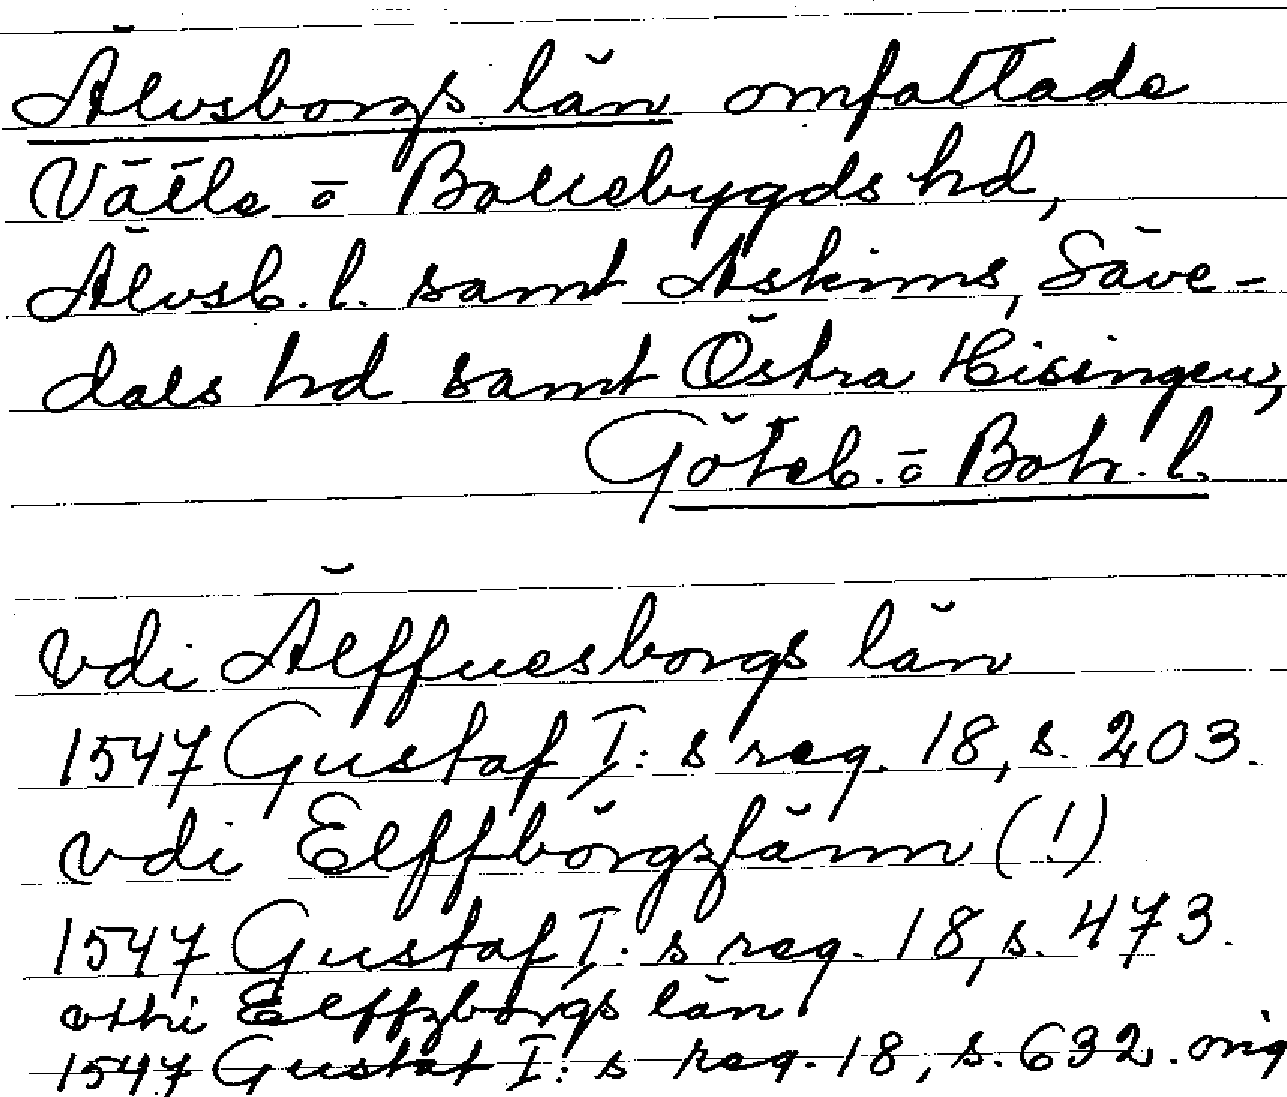 Älvsborgs län omfattade
Vättle o Bollebygds hd,
Älvsb. l. samt Askims, Säve-
dals hd samt Östra Hisingen,
Göteb. o Boh. l.
vdi Älffuesborgs län
1547 Gustaf I:s reg. 18, s. 203.
vdi Elffbörgsfänn (!)
1547 Gustaf I:s reg. 18, s. 473.
vthi Elffzborgs län
1547 Gustaf I:s reg. 18, s. 632. orig